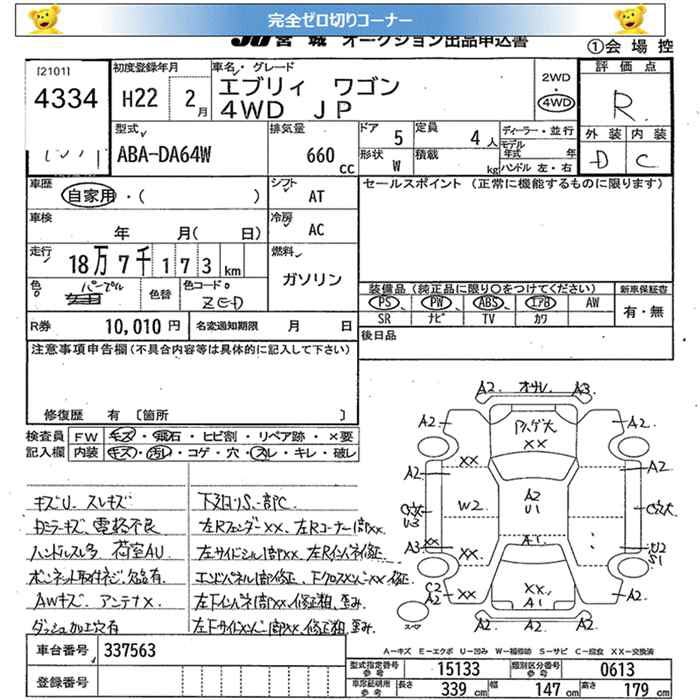 完全ゼロ切りコーナー
JU宮城 オークション出品申込書
①会場控
[2101]
4334
初度登録年月
H22 2月
車名・グレード
エブリィ ワゴン
4WD JP
2WD
・
4WD
評価点
R
外装 内装
D C
型式
ABA-DA64W
排気量
660 cc
ドア 5
定員 4人
形状 W
積載 kg
ディーラー・並行
モデル年式 年
ハンドル 左・右
車歴
自家用・( )
シフト AT
セールスポイント (正常に機能するものに限ります)
車検
年 月( 日)
冷房 AC
走行
18万7千173km
燃料
ガソリン
色 パープル
色替
色コード ZED
装備品 (純正品に限り○をつけてください)
新車保証書
PS PW ABS エアB AW
SR ナビ TV カワ
有・無
R券 10,010円
名変通知期限 月 日
後日品
注意事項申告欄(不具合内容等は具体的に記入して下さい)
修復歴 有 [箇所 ]
検査員記入欄
FW キズ・飛石・ヒビ割・リペア跡・×要
内装 キズ・汚レ・コゲ・穴・スレ・キレ・破レ
A2 オサレ A3
A2 A2
XX
A2 A2
XX
W2
A2
U1
U3
A3 XX
A1
U2
S1
C2
A2
XX
XX
A1
A2
A2 A2 A2
スペア
キズU. スレキズ
下廻りS.一部C
ミラーキズ、電格不良
左Rフェンダーxx、左Rコーナー部xx
ハンドルスレ多 荷室AU.
左サイドシル部xx、左Rインパネ修正
ボンネット取付ネジ欠品有
エンドパネル部修正、Fクロスメンバーxx修正
AWキズ、アンテナx
左Fインパネ部xx.修正粗、歪み
ダッシュ加工穴有
左Fサイドメンバー部xx、修正粗、歪み
A-キズ E-エクボ U-凹み W-補修跡 S-サビ C-腐食 XX-交換済
車台番号 337563
登録番号
型式指定番号参考 15133
類別区分番号参考 0613
車寸証明用参考 長さ 339cm 幅 147cm 高さ 179cm